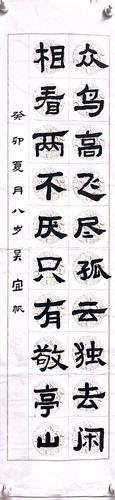 众鸟高飞尽孤云独去闲
相看两不厌只有敬亭山
癸卯夏月八岁吴宜帆